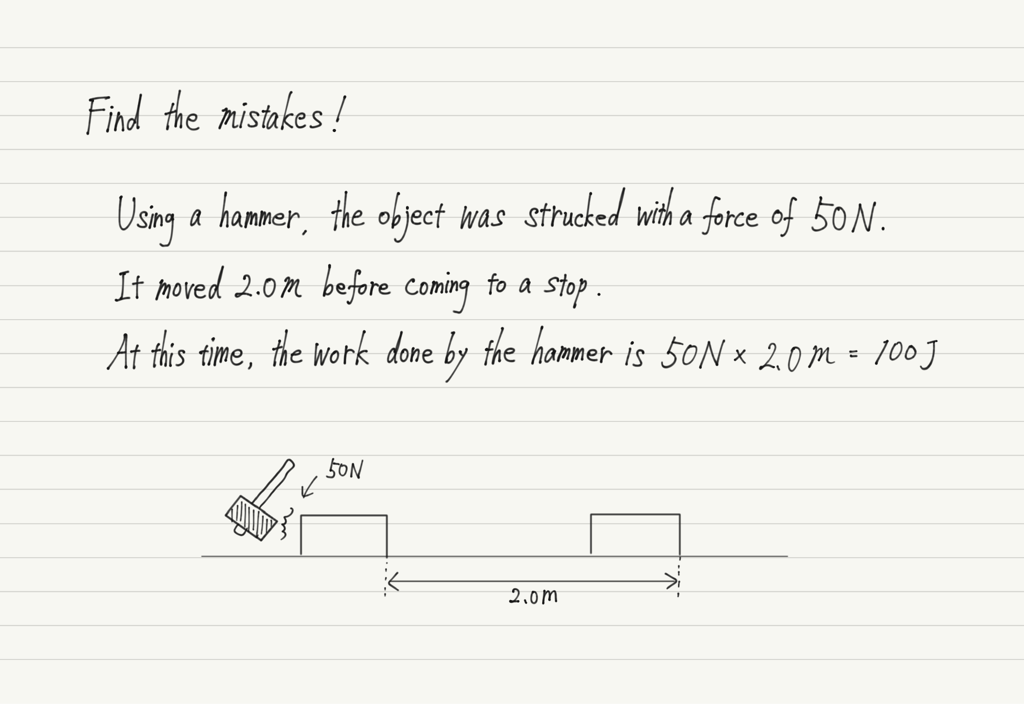 Find the mistakes!
Using a hammer, the object was strucked with a force of 50N.
It moved 2.0m before coming to a stop.
At this time, the work done by the hammer is 50N × 2.0m = 100J
50N
2.0m